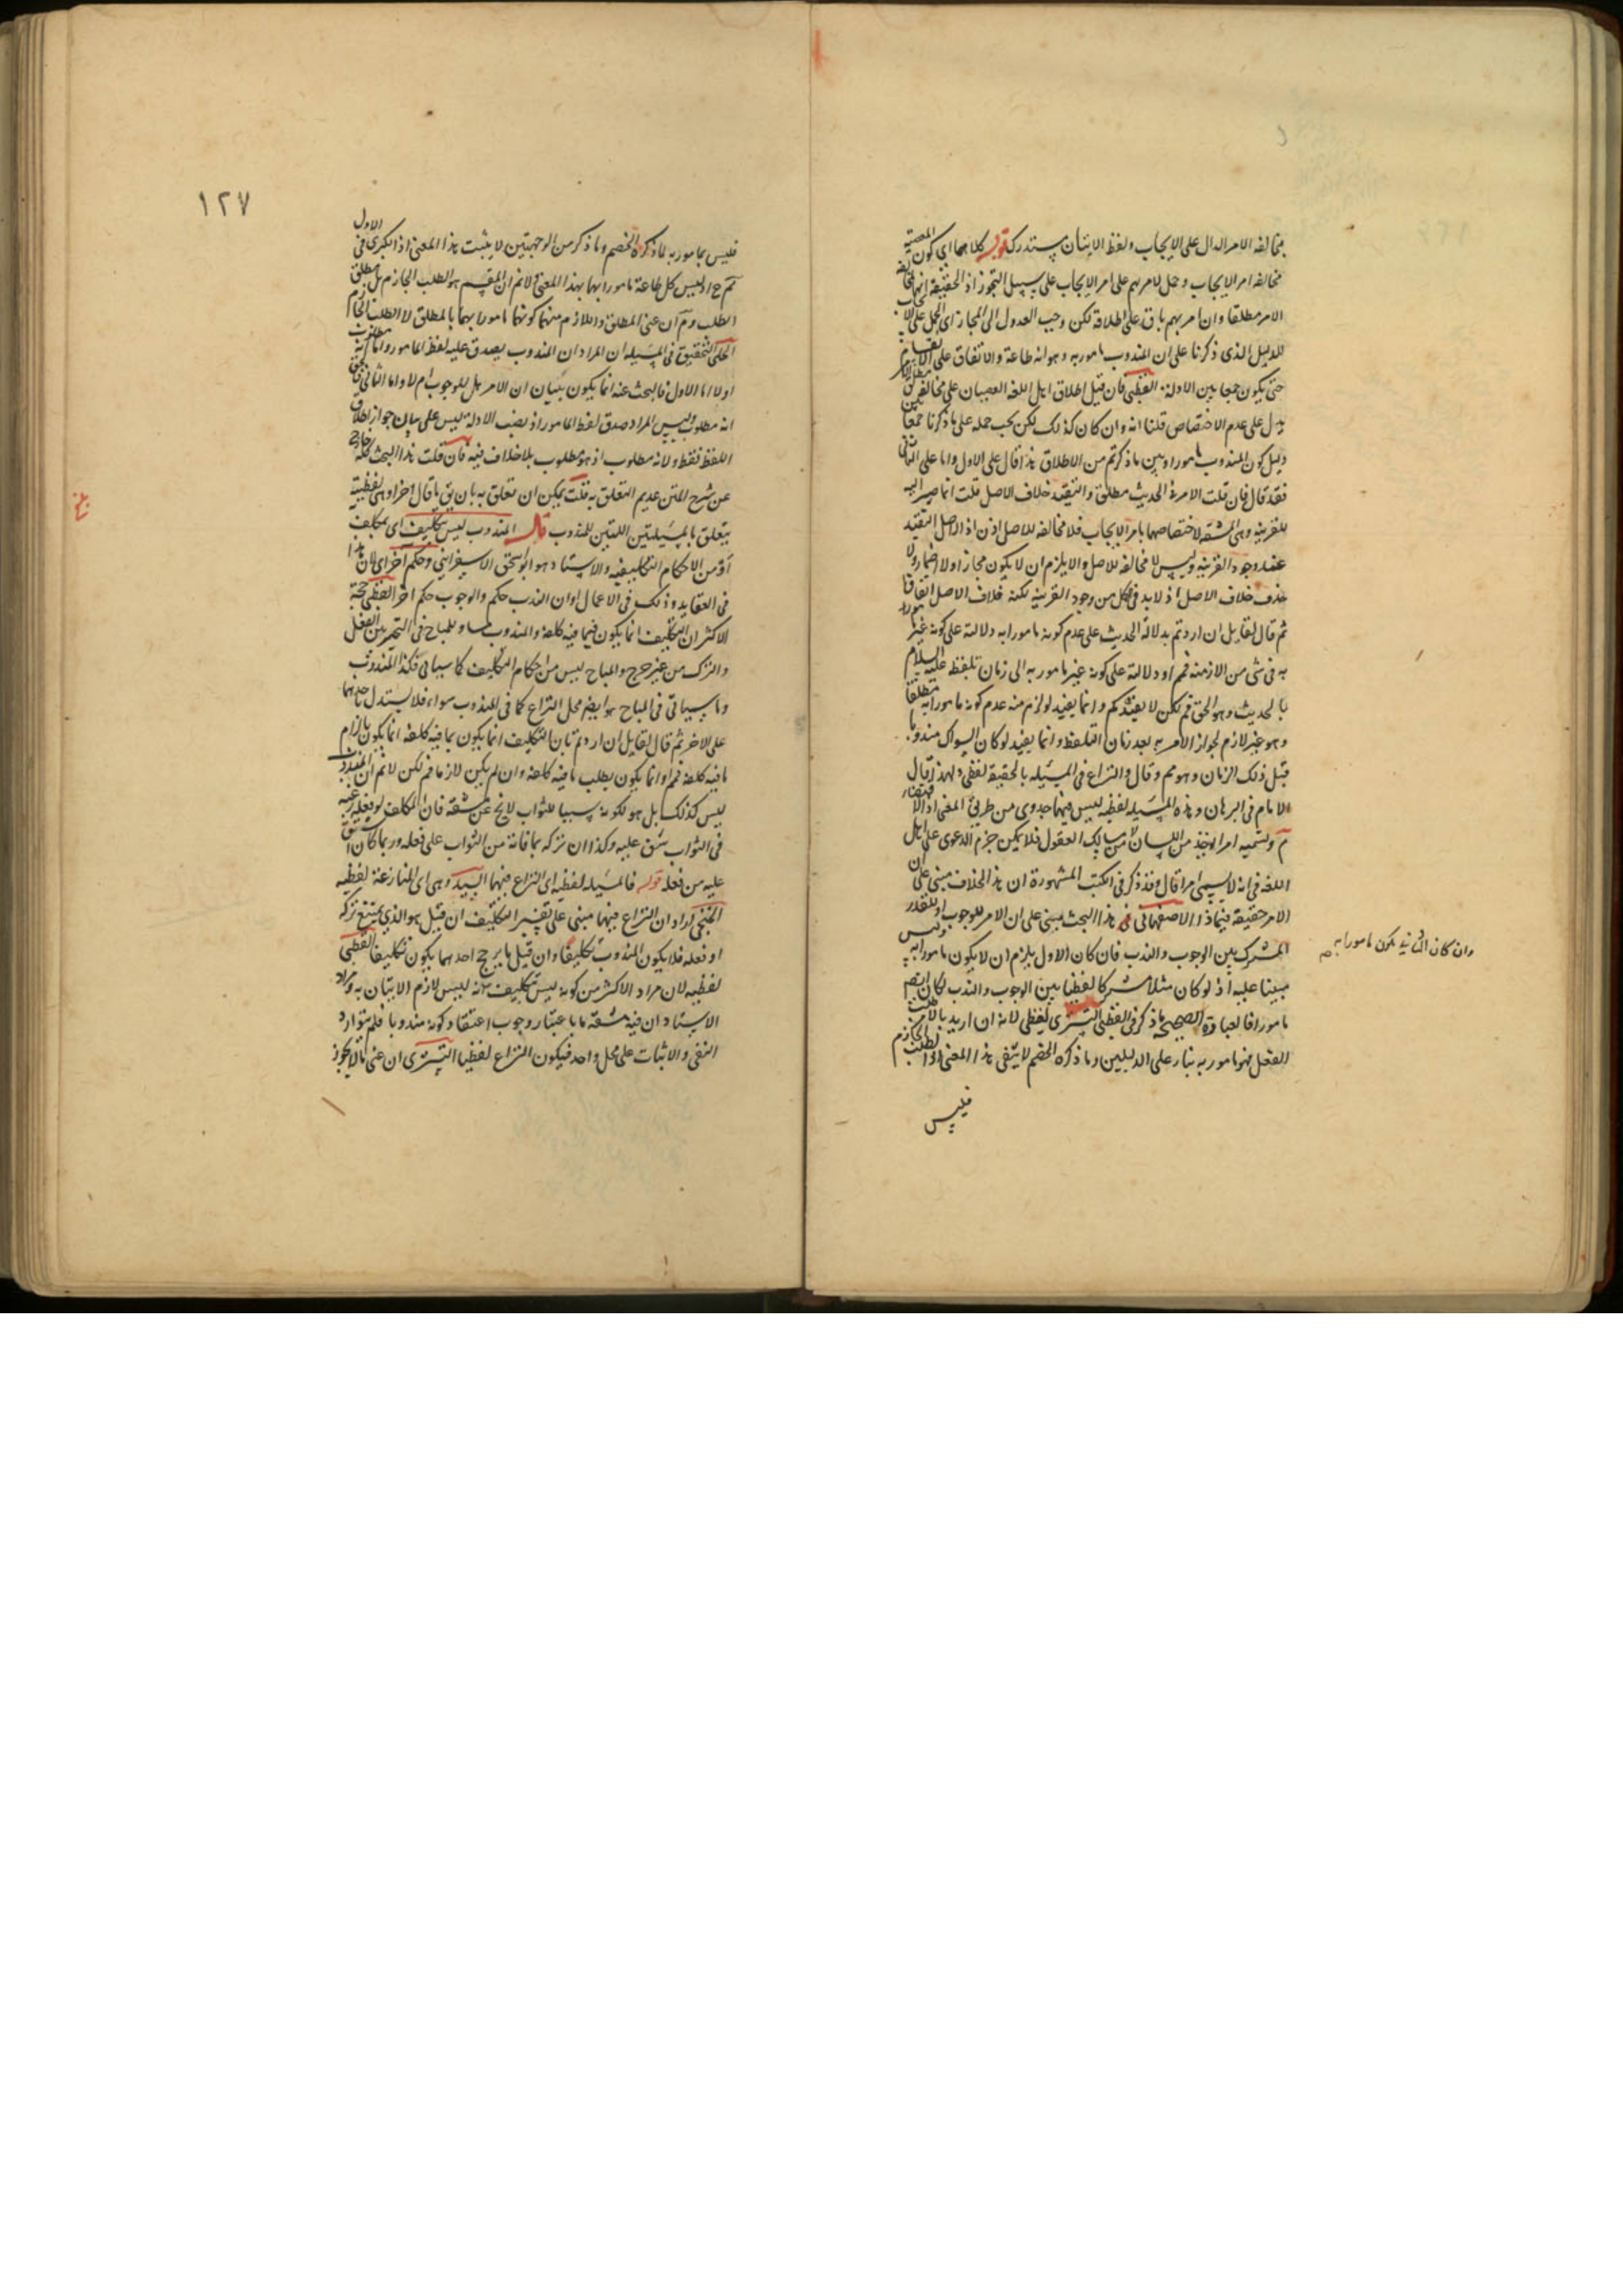 بمخالفه الامر الدال على الايجاب ولفظ الاتيان مستدرك قوله كلاهما اى كون المعصية
مخالفه امر الايجاب وحمل لامرتهم على امر الايجاب على سبيل التجوز اذ الحقيقة انهما مخالفه
الامر مطلقا وان امرتهم باق على اطلاقه لكن وجب العدول الى المجاز اى الحمل على الايجاب
للدليل الذى ذكرنا على ان المندوب مامور به وهو انه طاعة والاتفاق على
حتى يكون جمعا بين الادلة القطبى فان قيل اطلاق اهل اللغة العصيان على مخالفه مطلق الامر
يدل على عدم الاختصاص قلنا انه وان كان كذلك لكن يجب حمله على ما ذكرنا جمعا بين
دليل كون المندوب مامورا وبين ما ذكرتم من الاطلاق هذا قال على الاول واما على الثانى
فقد قال فان قلت الامر فى الحديث مطلق والتقييد خلاف الاصل قلت انما صير اليه
للقرينه وهى المشقه لاختصاصها بامر الايجاب فلا مخالفه للاصل اذن اذ الاصل التقييد
عند وجود القرينه وليس لا مخالفه للاصل والا يلزم ان لا يكون مجاز اولا اضمار ولا
حذف خلاف الاصل اذ لا بد فى كل من وجود القرينه لكنه خلاف الاصل اتفاقا
ثم قال لقايل ان اردتم بدلالة الحديث على عدم كونه مامورا به دلالته على كونه غير مامور
به فى شى من الازمنه فمم او دلالته على كونه غير مامور به الى زمان تلفظه عليه السلام
بالحديث وهو الحق فم لكن لا يفيدكم وانما يفيد لو لزم منه عدم كونه مامورا به مطلقا
وهو غير لازم لجواز الامر به بعد زمان التلفظ وانما يفيد لو كان السواك مندوبا
قبل ذلك الزمان وهو مم وقال والنزاع فى المسئله بالحقيقة لفظى ولهذا قال
الامام فى البرهان وهذه المسئله لفظيه ليس فيها جدوى من طريق المعنى اذ الاقتضاء
م وتسميه امرا يوخذ من اللسان لا من مسالك العقول فلا يمكن جزم الدعوى على اهل
اللغة فى انه لا يسمى امرا قال وقد ذكر فى الكتب المشهورة ان هذا الخلاف مبنى على ان
الامر حقيقة فيماذا الاصفهانى هذا البحث مبنى على ان الامر للوجوب او للقدر
المشترك بين الوجوب والندب فان كان الاول يلزم ان لا يكون مامورا به وليس
مبينا عليه اذ لو كان مثلا مشتركا لفظيا بين الوجوب والندب لكان ايضا
مامورا فالعبارة الصحيحه ما ذكر فى القطبى التسترى لفظى لانه ان اريد بالامر طلب
الفعل فهو مامور به بناء على الدليلين وما ذكره الخصم لا ينفى هذا المعنى او الطلب الجازم
فليس
وان كان الثانى يكون مامورا به صح
١٢٧
فليس بمامور به لما ذكره الخصم وما ذكر من الوجهتين لا يثبت هذا المعنى اذ الكبرى فى الاول
مم ح اذ ليس كل طاعة مامورا بها بهذا المعنى لانم ان المقسم هو الطلب الجازم بل مطلق
الطلب وم ان عنى المطلق واللازم منهما كونهما مامورا بهما بالمطلق لا الطلب الجازم
الحلى التحقيق فى المسئله ان المراد ان المندوب يصدق عليه لفظ المامور او انه مطلوب
اولا اما الاول فالبحث عنه انما يكون ببيان ان الامر بل للوجوب ام لا واما الثانى فالحق
انه مطلوب وليس المراد صدق لفظ المامور اذ نصب الادلة ليس على بيان جواز اطلاق
اللفظ فقط ولا نه مطلوب اذ هو مطلوب بلا خلاف فيه فان قلت هذا البحث كله خارج
عن شرح المتن عديم التعلق به قلت يمكن ان تعلق به بان يق ما قال اخرا وهى لفظية
يتعلق بالمسئلتين اللتين للمندوب قال المندوب ليس بتكليف اى بمكلف
او من الاحكام التكليفيه والاستاد هو ابو اسحق الاسفراينى وحكم اخر اى لان هذا
فى العقايد وذلك فى الاعمال او ان الندب حكم والوجوب حكم اخر القطبى حجة
الاكثر ان التكليف انما يكون فيما فيه كلفة والمندوب مساو للمباح فى التخيير بين الفعل
والترك من غير حرج والمباح ليس من احكام التكليف كما سياتى فكذا المندوب
وما سياتى فى المباح هو ايضا محل النزاع كما فى المندوب سواء فلا يستدل باحدهما
على الاخر ثم قال لقايل ان اردتم بان التكليف انما يكون بما فيه كلفه انما يكون بالزام
ما فيه كلفه فمم او انما يكون بطلب ما فيه كلفه وان لم يكن لازما فم لكن لانم ان المندوب
ليس كذلك بل هو لكونه سببا للثواب لا يخ عن مشقه فان المكلف لو فعله رغبه
فى الثواب شق عليه وكذا ان تركه بما فاته من الثواب على فعله وربما كان اشق
عليه من فعله قوله فالمسئله لفظيه اى النزاع فيها السيد وهى اى المنازعة لفظيه
الخنجى اراد ان النزاع فيها مبنى على تفسير التكليف ان قيل هو الذى يمتنع تركه
او فعله فلا يكون المندوب تكليفا وان قيل ما يرجح احدهما يكون تكليفا القطبى
لفظيه لان مراد الاكثر من كونه ليس بتكليف انه ليس لازم الاتيان به ومراد
الاستاد ان فيه مشقه ما باعتبار وجوب اعتقاد كونه مندوبا فلم يتوارد
النفى والاثبات على محل واحد فيكون النزاع لفظيا التسترى ان عنى ما لا يجوز